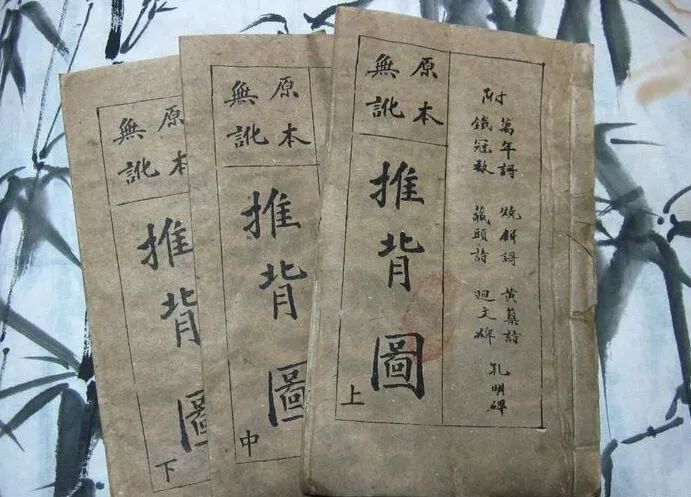 附
萬年謌 燒餅謌 黃蘗詩 孔明碑
鐵冠數 藏頭詩 迴文碑
原本
無訛
推背圖
上
原本
無訛
推背圖
中
原本
無訛
推背圖
下